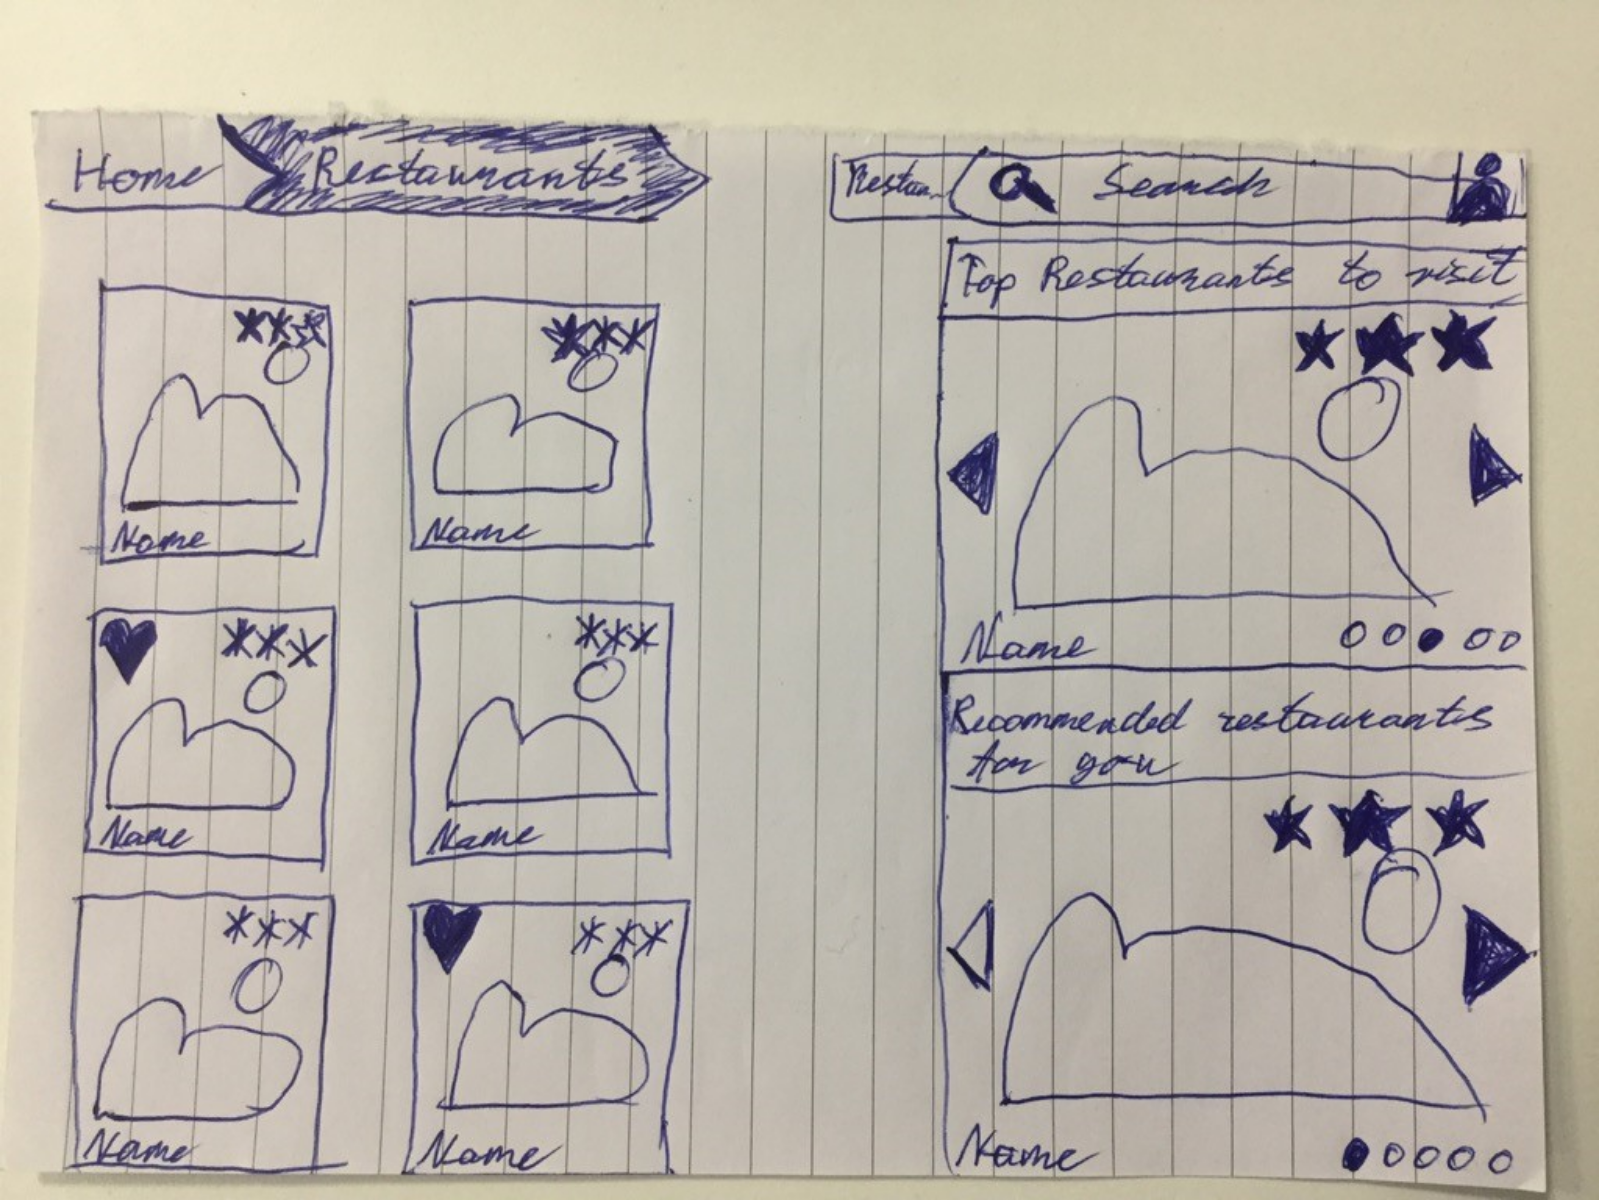 Home Restaurants
Name Name
Name Name
Name Name
Restau.. Search
Top Restaurants to visit
Name
Recommended restaurants
for you
Name